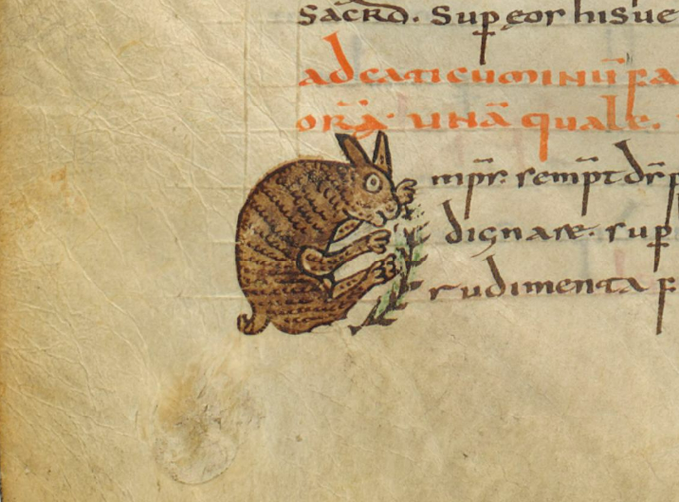 SACRD. Sup eos hi sue
ad caticuminū fa
orā. unā quale.
mp̄r. sempt̄ dr̄
dignare. sup
rudimenta